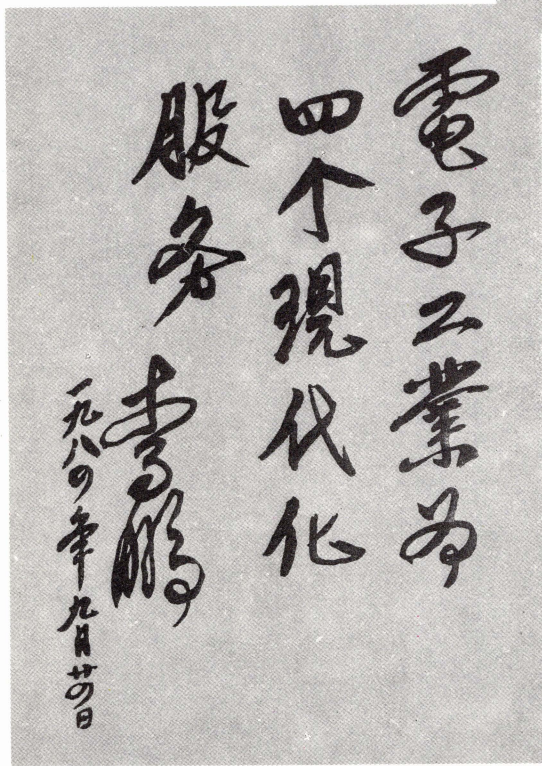 電子工業为
四个現代化
服务
李鹏
一九八四年九月廿四日